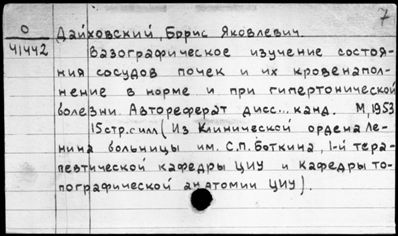 7
О
41442
Дайховский, Борис Яковлевич.
Вазографическое изучение состоя-
ния сосудов почек и их кровенапол-
нение в норме и при гипертонической
болезни. Автореферат дисс... канд. М, 1953
15стр.силл (Из Клинической ордена Ле-
нина больницы им. С.П. Боткина, 1-й тера-
певтической кафедры ЦИУ и Кафедры то-
пографической анатомии ЦИУ).